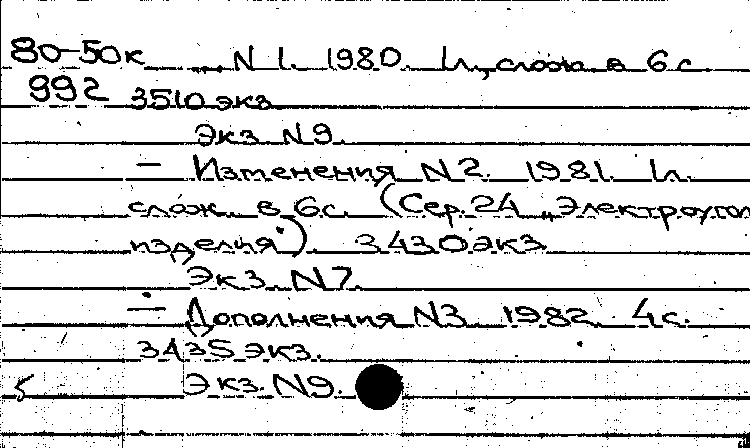 80-50к ... N 1. 1980. 1л., слож. в 6 с.
992 3510 экз.
Экз. N9.
— Изменения N2. 1981. 1л.
слож. в 6с. (Сер. 24 „Электроугол
изделия"). 3430 экз.
Экз. N7.
— Дополнения N3. 1982. 4с.
3435 экз.
5 Экз. N9.